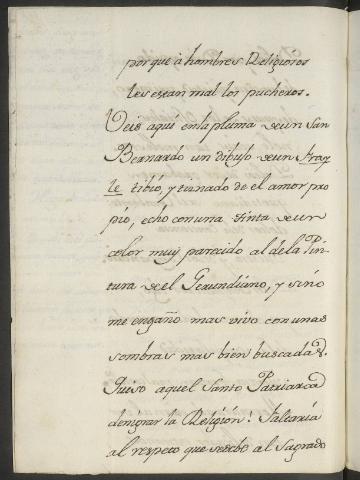 porque à hombres Religiosos
les estan mal los pucheros.
Veis aquí en la pluma de un San
Bernardo un dibujo de un Fray
le tibio, y tiznado de el amor pro
pio, echo con una tinta de un
color muy parecido al de la Pin-
tura de el Gerundiano, y si no
me engaño mas vivo con unas
sombras mas bien buscadas.
Quiso aquel Santo Patriarca
denigrar la Religión? Faltaría
al respeto que se debe al Sagrado